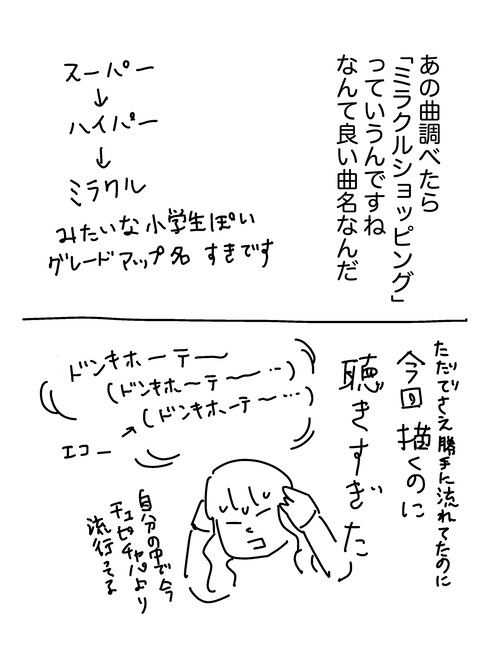 あの曲調べたら
「ミラクルショッピング」
っていうんですね
なんて良い曲名なんだ
スーパー
↓
ハイパー
↓
ミラクル
みたいな小学生ぽい
グレードアップ名 すきです
ただでさえ勝手に流れてたのに
今回描くのに
聴きすぎた
ドンキホーテー
(ドンキホーテ〜…)
(ドンキホーテ〜…)
エコー
自分の中で今
チュピチャパより
流行ってる